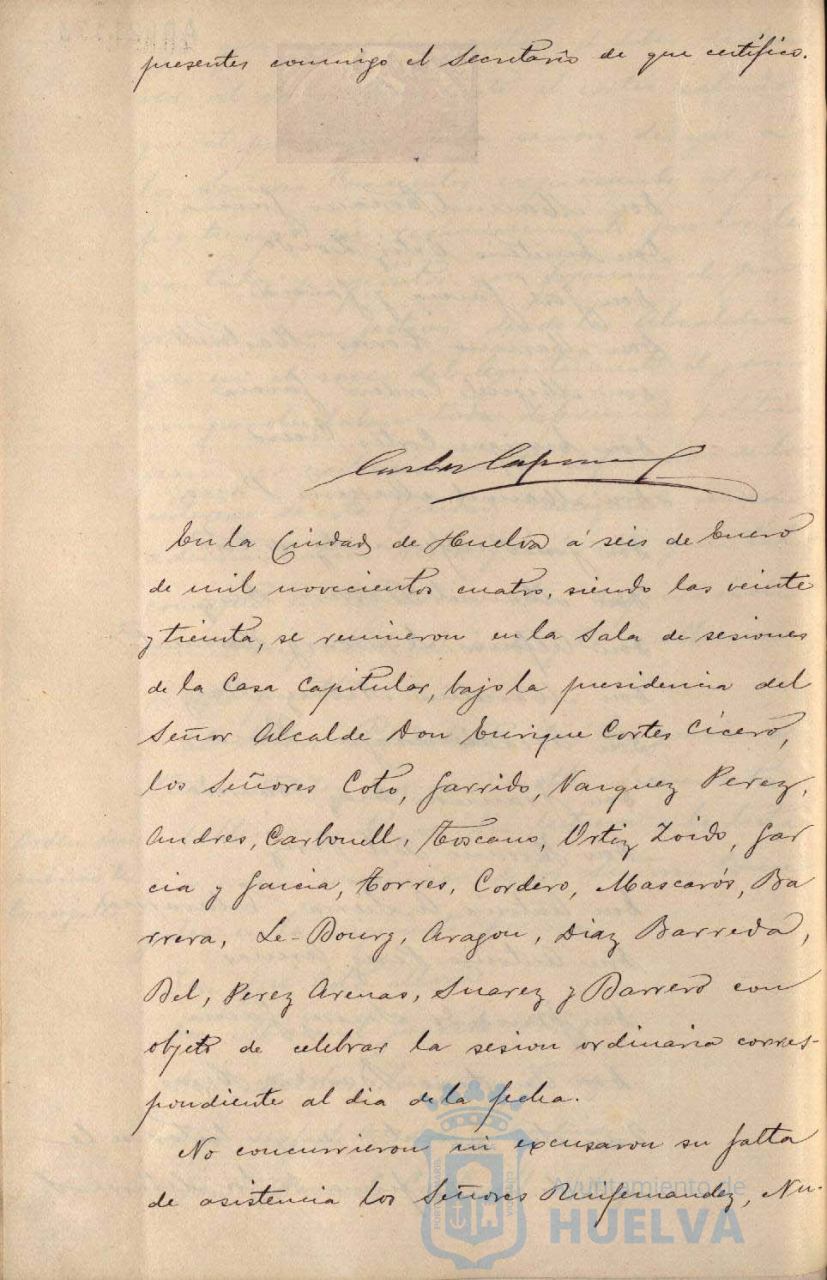 presentes conmigo el Secretario de que certifico.
Carlos
En la Ciudad de Huelva á seis de Enero
de mil novecientos cuatro, siendo las veinte
y treinta, se reunieron en la Sala de sesiones
de la Casa Capitular, bajo la presidencia del
Señor Alcalde Don Enrique Cortes Cícero,
los Señores Coto, Garrido, Vazquez Perez,
Andres, Carbonell, Toscano, Ortiz Zoido, Gar
cia y Garcia, Torres, Cordero, Mascarós, Ba
rrera, Le-Bourg, Aragon, Diaz Barreda,
Bel, Perez Arenas, Suarez y Barrero con
objeto de celebrar la sesion ordinaria corres-
pondiente al dia de la fecha.
No concurrieron ni excusaron su falta
de asistencia los Señores Ruifernandez, Nu-
Ayuntamiento de
HUELVA